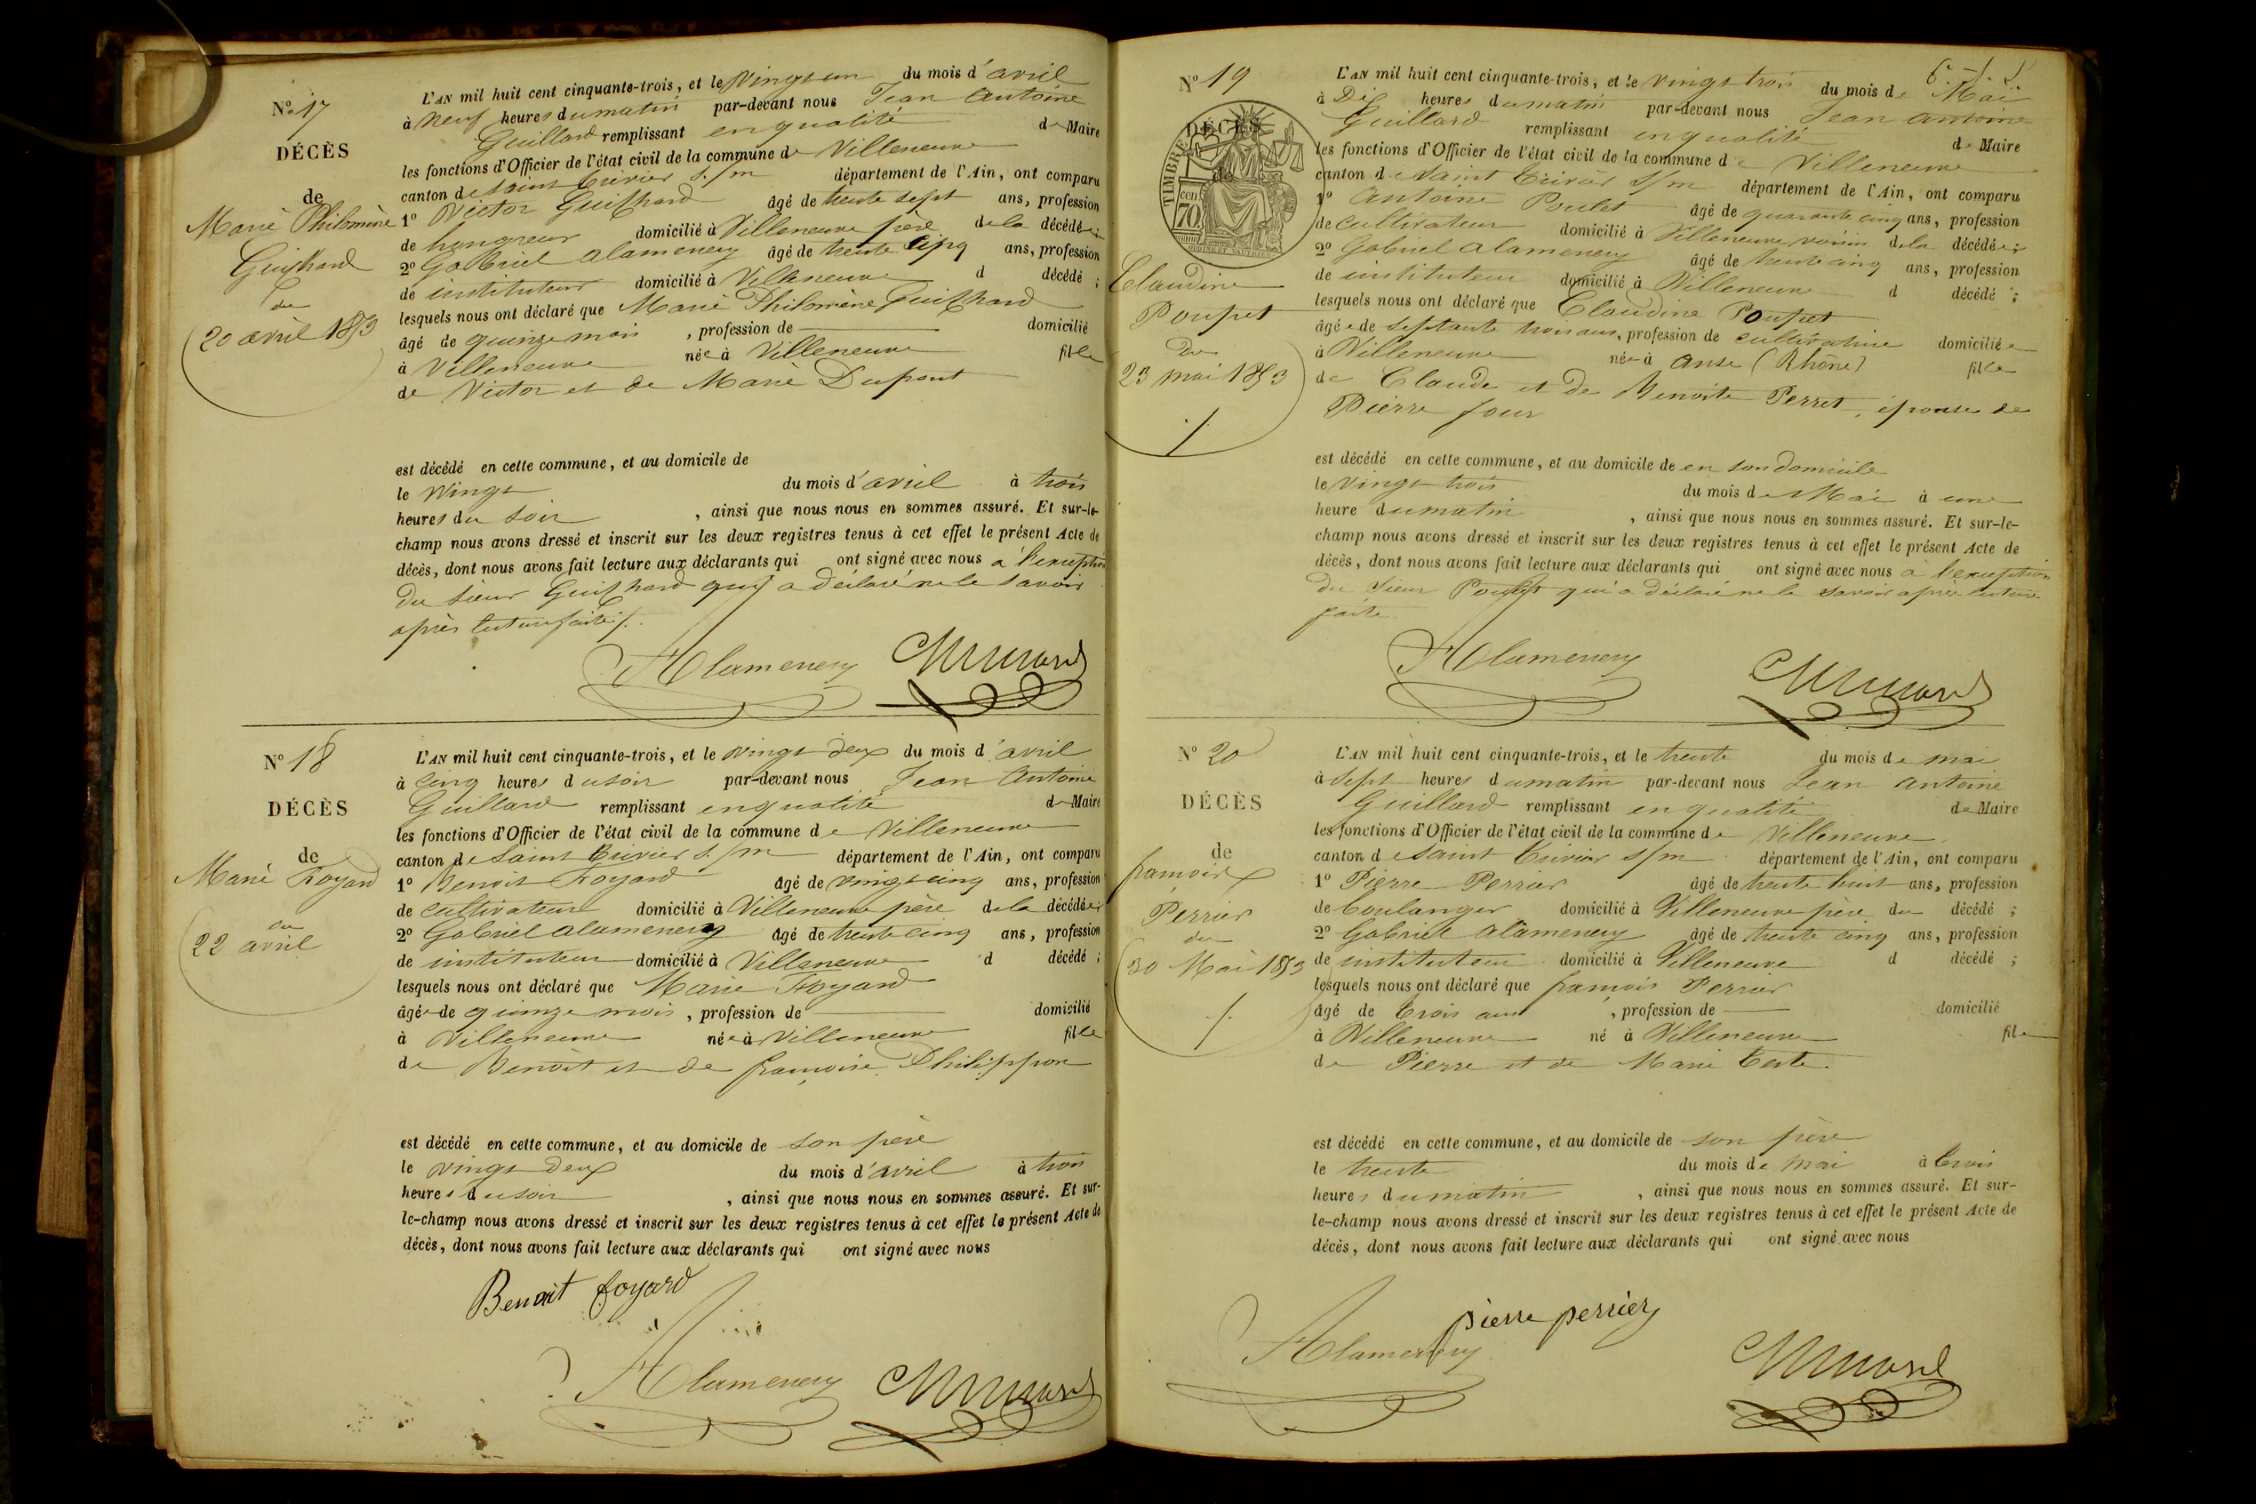 Nº 17
DÉCÈS
de
Marie Philomène
Guichard
du
20 avril 1853
L'AN mil huit cent cinquante-trois, et le vingt un du mois d'avril
à neuf heures du matin par-devant nous Jean Antoine
Guillard remplissant en qualité de Maire
les fonctions d'Officier de l'état civil de la commune de Villeneuve
canton de Saint Trivier s./m département de l'Ain, ont comparu
1º Victor Guichard âgé de trente sept ans, profession
de hongreur domicilié à Villeneuve père de la décédée;
2º Gabriel Alamenery âgé de trente cinq ans, profession
de instituteur domicilié à Villeneuve d décédé ;
lesquels nous ont déclaré que Marie Philomène Guichard
âgé de quinze mois , profession de domicilié
à Villeneuve née à Villeneuve fille
de Victor et de Marie Dupont
est décédé en cette commune, et au domicile de
le vingt du mois d'avril à trois
heures du soir , ainsi que nous nous en sommes assuré. Et sur-le-
champ nous avons dressé et inscrit sur les deux registres tenus à cet effet le présent Acte de
décès, dont nous avons fait lecture aux déclarants qui ont signé avec nous à l'exception
du sieur Guichard qui a déclaré ne le savoir
après lecture faite /.
Alamenery
Nº 18
DÉCÈS
de
Marie Foyard
du
22 avril
L'AN mil huit cent cinquante-trois, et le vingt deux du mois d'avril
à cinq heures du soir par-devant nous Jean Antoine
Guillard remplissant en qualité de Maire
les fonctions d'Officier de l'état civil de la commune de Villeneuve
canton de Saint Trivier s./m département de l'Ain, ont comparu
1º Benoit Foyard âgé de vingt cinq ans, profession
de cultivateur domicilié à Villeneuve père de la décédée;
2º Gabriel Alamenery âgé de trente cinq ans, profession
de instituteur domicilié à Villeneuve d décédé ;
lesquels nous ont déclaré que Marie Foyard
âgée de quinze mois , profession de domicilié
à Villeneuve née à Villeneuve fille
de Benoit et de françoise Philippon
est décédé en cette commune, et au domicile de son père
le vingt deux du mois d'avril à trois
heures du soir , ainsi que nous nous en sommes assuré. Et sur-
le-champ nous avons dressé et inscrit sur les deux registres tenus à cet effet le présent Acte de
décès, dont nous avons fait lecture aux déclarants qui ont signé avec nous
Benoit foyard
Alamenery
Nº 19
DÉCÈS
TIMBRE
70
Claudine
Poupet
du
23 mai 1853
L'AN mil huit cent cinquante-trois, et le vingt trois du mois de Mai
à Dix heures du matin par-devant nous Jean Antoine
Guillard remplissant en qualité de Maire
les fonctions d'Officier de l'état civil de la commune de Villeneuve
canton de Saint Trivier s/m département de l'Ain, ont comparu
1º Antoine Poulet âgé de quarante cinq ans, profession
de cultivateur domicilié à Villeneuve voisin de la décédée;
2º Gabriel Alamenery âgé de trente cinq ans, profession
de instituteur domicilié à Villeneuve d décédé ;
lesquels nous ont déclaré que Claudine Poupet
âgée de septante trois ans, profession de cultivatrice domiciliée
à Villeneuve née à Anse (Rhône) fille
de Claude et de Benoite Perret, épouse de
Pierre four
est décédé en cette commune, et au domicile de en son domicile
le vingt trois du mois de Mai à une
heure du matin , ainsi que nous nous en sommes assuré. Et sur-le-
champ nous avons dressé et inscrit sur les deux registres tenus à cet effet le présent Acte de
décès, dont nous avons fait lecture aux déclarants qui ont signé avec nous à l'exception
du sieur Poulet qui a déclaré ne le savoir après lecture
faite
Alamenery
Nº 20
DÉCÈS
de
françois
Perrier
du
30 Mai 1853
L'AN mil huit cent cinquante-trois, et le trente du mois de mai
à sept heures du matin par-devant nous Jean Antoine
Guillard remplissant en qualité de Maire
les fonctions d'Officier de l'état civil de la commune de Villeneuve
canton de Saint Trivier s/m département de l'Ain, ont comparu
1º Pierre Perrier âgé de trente huit ans, profession
de boulanger domicilié à Villeneuve père du décédé ;
2º Gabriel Alamenery âgé de trente cinq ans, profession
de instituteur domicilié à Villeneuve d décédé ;
lesquels nous ont déclaré que françois Perrier
âgé de trois ans , profession de domicilié
à Villeneuve né à Villeneuve fils
de Pierre et de Marie Terte
est décédé en cette commune, et au domicile de son père
le trente du mois de mai à trois
heures du matin , ainsi que nous nous en sommes assuré. Et sur-
le-champ nous avons dressé et inscrit sur les deux registres tenus à cet effet le présent Acte de
décès, dont nous avons fait lecture aux déclarants qui ont signé avec nous
pierre perrier
Alamenery